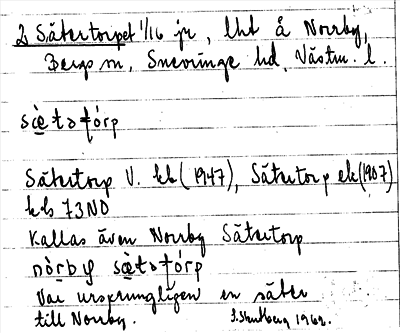 2) Sätertorpet 1/16 jn, lht å Norrby,
Bergs sn, Snevringe hd, Västm. l.
sæ̀tətɷ́rp
Sätertorp V. kb (1947), Sätertorp ek (1907)
kbs 73ND
Kallas även Norrby Sätertorp
nòrby sæ̀tətɷ́rp
Var ursprungligen en säter
till Norrby. 1962.